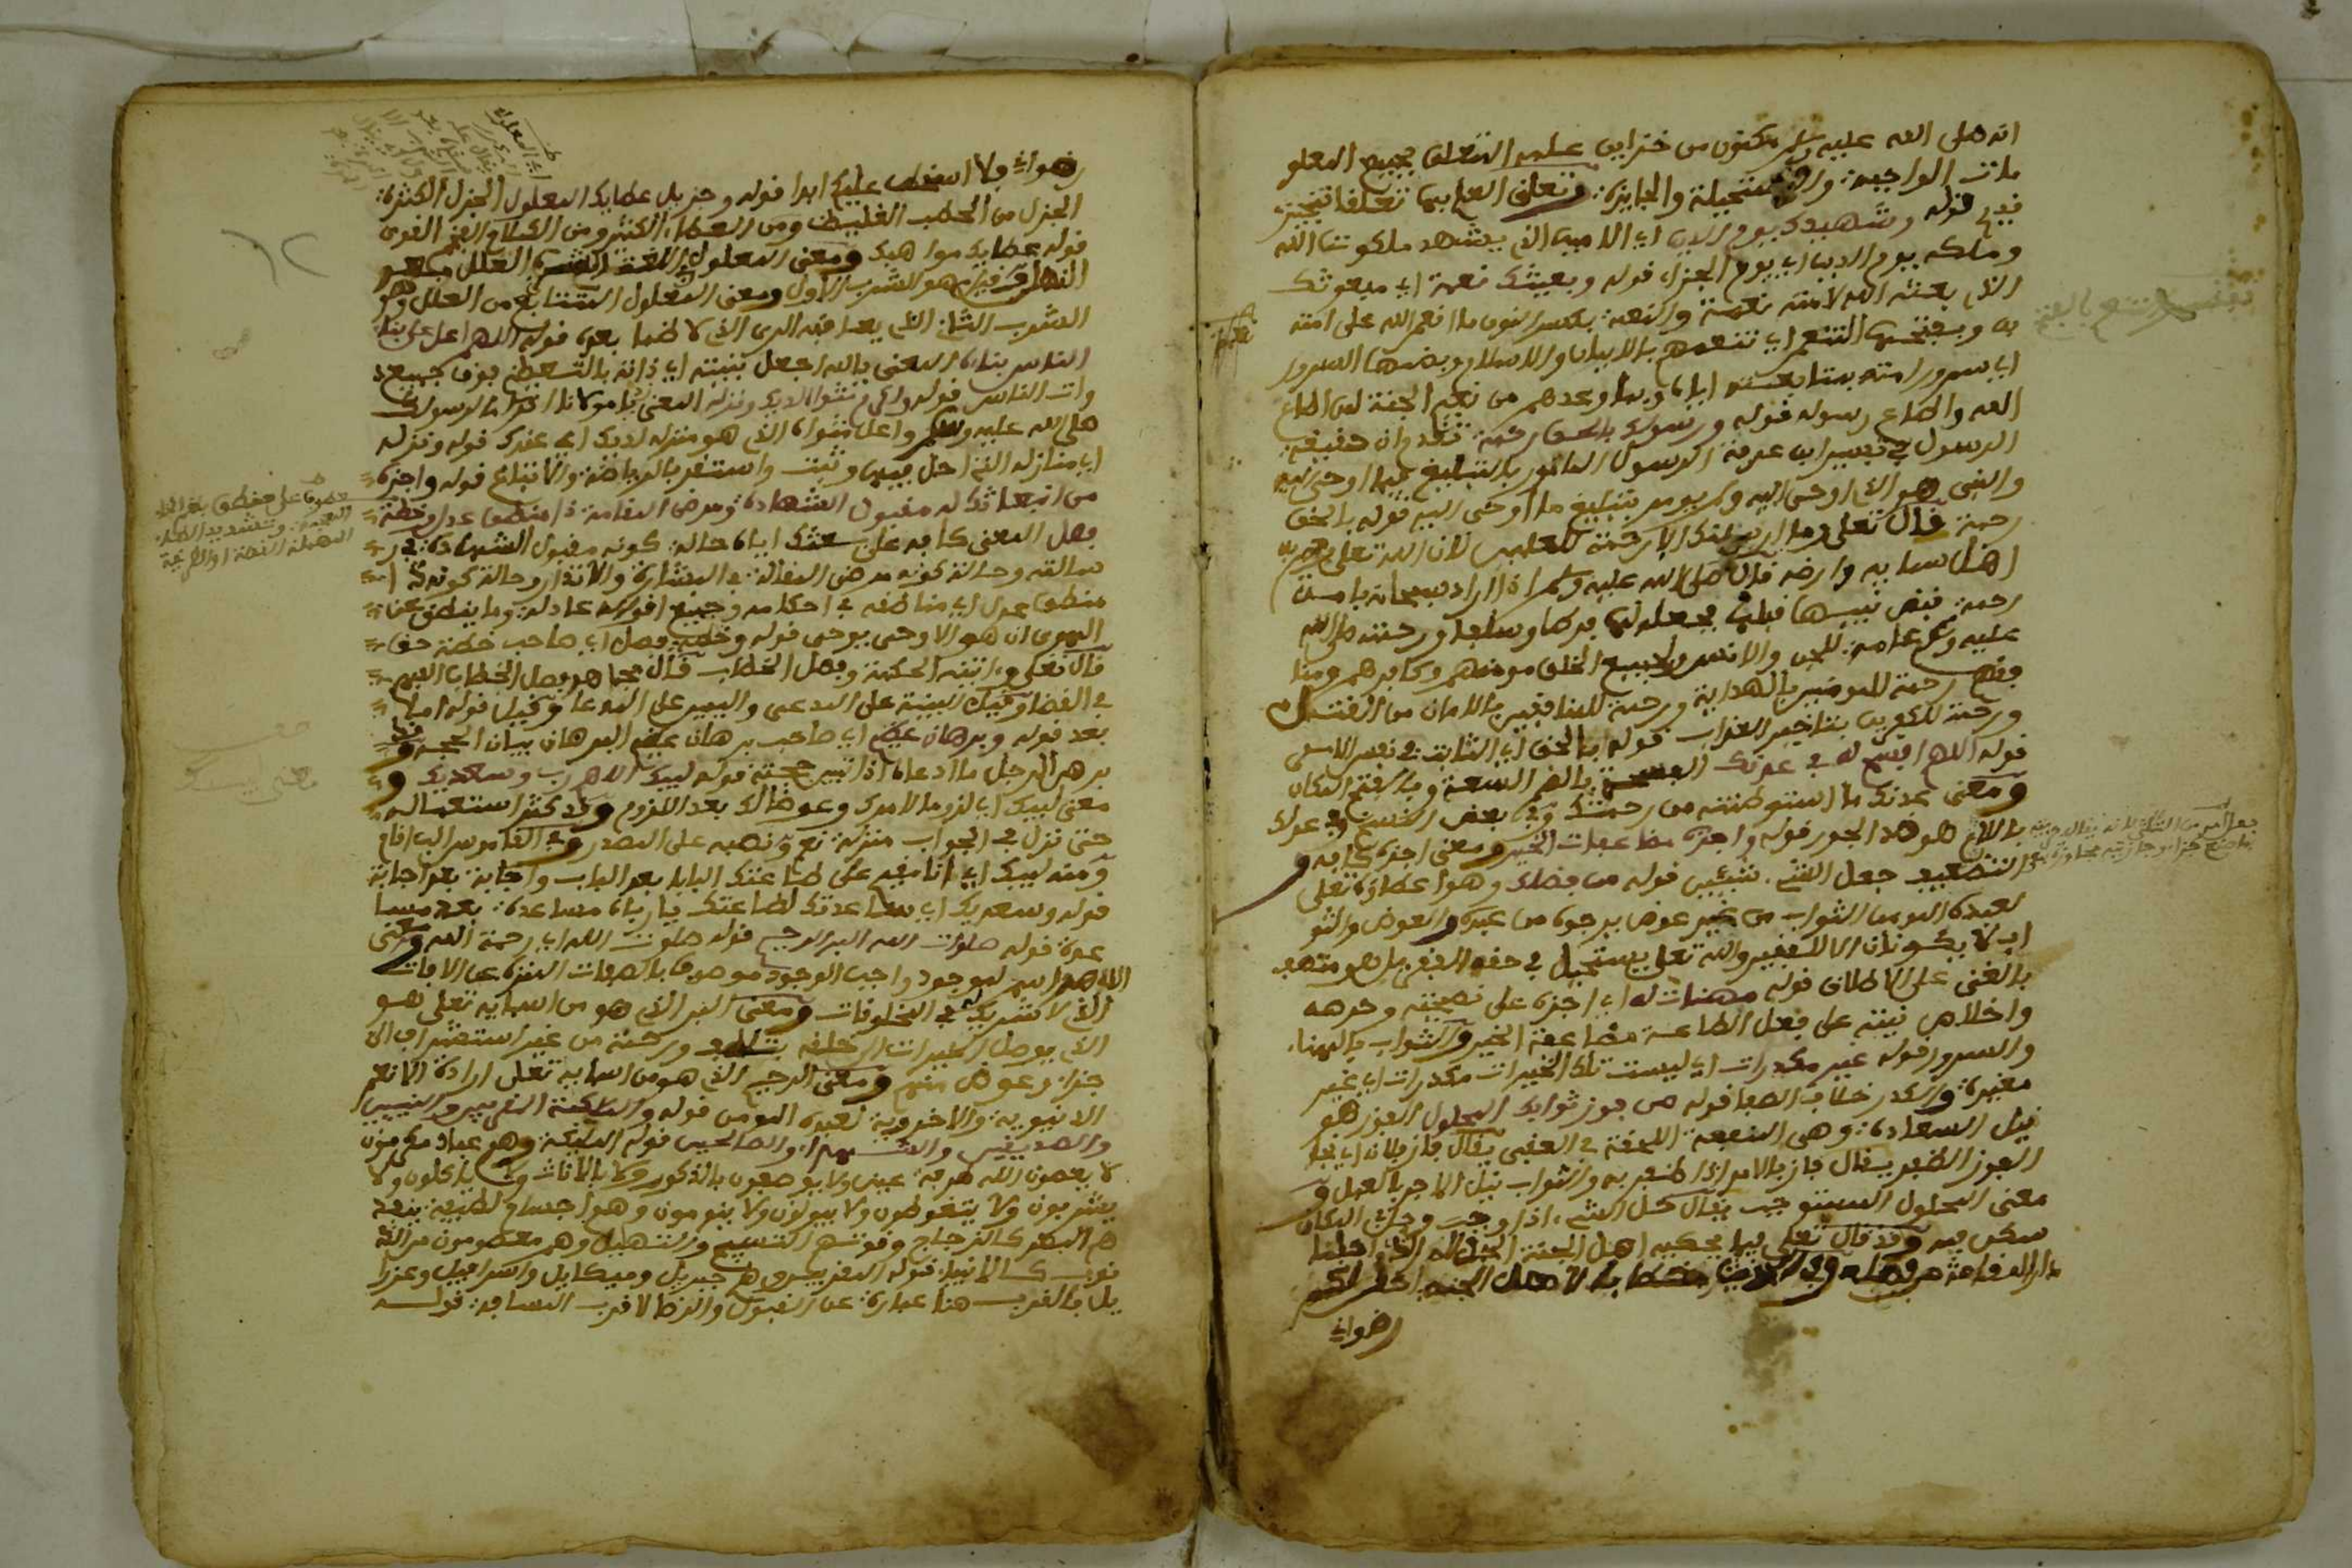 انه صلى الله عليه وسلم مكنون من خزاين علمه المتعلق بجميع المعلو
مات الواجبة والمستحيلة والجايزة وتعلق العلم بها تعلقا تنجيز
قوله وشهيدك يوم الدين اي الامين الذي يشهد ملكوت الله
وملكه يوم الدين اي يوم الجزاء قوله وبعيثك نعمة اي مبعوثك
الذي بعثته الى امته نعمة والنعمة بكسر النون ما انعم الله على امته
به وبفتحها التنعم اي تنعمهم بالايمان والاسلام وبضمها السرور
اي سرور امته بمتابعته اياه وبما وعدهم من نعيم الجنة لمن اطاع
الله واطاع رسوله قوله ورسولك بالحق رحمة
الرسول في تفسير ابن عرفة الرسول المامور بالتبليغ فيما اوحي اليه
والنبي هو الذي اوحي اليه ولم يومر بتبليغ ما اوحي اليه قوله بالحق
رحمة قال تعلى وما ارسلنك الا رحمة للعلمين لان الله تعلى
اهل سمايه وارضه قال صلى الله عليه وسلم اذا اراد الله بامة
رحمة قبض نبيها قبلها فجعله لها فرطا وسلفا ورحمته صلى الله
عليه وسلم عامة للجن والانس ولجميع الخلق مومنهم وكافرهم
رحمة للمومنين بالهداية ورحمة للمنافقين بالامان من القتل
ورحمة للكفرين بتاخير العذاب قوله بالحق اي الثابت في نفس الامر
قوله اللهم افسح له في عدنك الفسحة بالضم السعة وبالفتح المكان
ومعنى عدنك ما استوطنته من رحمتك وفي بعض النسخ في عدلك
باللام هو ضد الجور قوله واجزه مضاعفات الخير ومعنى اجزه كافه و
التضعيف جعل الشيء شيئين قوله من فضلك وهو اعطاؤه تعلى
لعبده المومن الثواب من غير عوض يرجوه من عبده والعوض والثو
اب لا يكونان الا للفقير والله تعلى يستحيل في حقه الفقر بل هو متصف
بالغنى على الاطلاق قوله مهنات له اي اجزه على نصيحته وحرصه
واخلاص نيته على فعل الطاعة مضاعفة الخير والثواب بالهناء
والسرور قوله غير مكدرات اي ليست تلك الخيرات مكدرات اي غير
مغيرة والكدر خلاف الصفا قوله من فوز ثوابك المحلول الفوز هو
نيل السعادة وهي المنفعة اللاحقة في العقبى يقال فاز فلان اي نجا
الفوز الظفر يقال فاز بالامر اذا ظفر به والثواب نيل الاجر بالعمل و
معنى المحلول المستوجب يقال حل الشيء اذا وجب وحل المكان
سكن فيه وقد قال تعلى فيما يحكيه اهل الجنة الحمد لله الذي احلنا
دار المقامة من فضله وفي الحديث خطابا لاهل الجنة احل لكم
رضواني
رضواني فلا اسخط عليكم ابدا قوله وجزيل عطائك المعلول الجزل الكثرة
الجزل من الحطب الغليظ ومن العطاء الكثير ومن الكلام الفهم القوي
قوله عطايك مواهبك ومعنى المعلول
هو الشرب الاول ومعنى المعلول المتتابع من العلل وهو
الشرب الثاني الذي يعد فيه الري الذي لا ظما بعده قوله اللهم اعل على بناء
الناس بناءه المعنى يا الله اجعل بنيته اي ذاته بالتعظيم فوق جميع
ذوات الناس قوله واكرم مثواه لديك ونزله المعنى يا مولانا اكرم الرسول
صلى الله عليه وسلم واعل مثواه الذي هو منزله لديك اي عندك قوله ونزله
اي منازله التي احل فيها وثبت واستقر بالرياضة والاتباع قوله واجزه
من ابتعاثك له مقبول الشهادة ومرضي المقالة ذا منطق عدل وخطة
فصل المعنى كافه على بعثك اياه حالة كونه مقبول الشهادة في ر
سالته وحالة كونه مرضي المقالة في البشارة والانذار وحالة كونه ذا
منطق عدل اي مناطقه في احكامه وجميع اقواله عادلة وما ينطق عن
الهوى ان هو الا وحي يوحى قوله وخطة فصل اي صاحب خطة حق
قال تعلى وءاتينه الحكمة وفصل الخطاب قال مجاهد فصل الخطاب الفهم
في القضا وقيل البينة على المدعي واليمين على المدعا وقيل قوله اما
بعد قوله وبرهان عظيم اي صاحب برهان عظيم البرهان بيان الحجة
برهن الرجل ما ادعاه اذا تبين حجته قوله لبيك اللهم رب وسعديك و
معنى لبيك اي لزوما لامرك وعوضا لك بعد اللزوم وقد كثر استعماله
حتى نزل في الجواب منزلة نعم ونصبه على المصدر وفي القاموس الب اقام
ومنه لبيك اي انا مقيم على طاعتك البابا بعد الباب واجابة بعد اجابة
قوله وسعديك اي ساعدتك لطاعتك يا رباه مساعدة بعد مسا
عدة قوله صلوات الله البر الرحيم قوله صلوت الله اي رحمة الله ومعنى
الله هو اسم لموجود واجب الوجود موصوف بالصفات المنزه عن الافات
الذي لا شريك له في المخلوقات ومعنى البر الذي هو من اسمايه تعلى هو
الذي يوصل الخيرات الى خلقه بلطف ورحمته من غير استشراف الى
جزاء وعوض منهم ومعنى الرحيم الذي هو من اسمايه تعلى ارادة الانعم
الدنيوية والاخروية لعبده المومن قوله والملئكة المقربين والنبيين
والصديقين والشهداء والصالحين قوله الملئكة وهم عباد مكرمون
لا يعصون الله طرفة عين ولا يوصفون بالذكورة ولا بالاناث ولا ياكلون ولا
يشربون ولا يتغوطون ولا يبولون ولا ينومون وهم اجسام لطيفة ينفذ
هم البصر كالزجاج وقوتهم التسبيح والتهليل وهم معصومون من الذ
نوب كالانبياء قوله المقربين وهم جبريل وميكايل واسرافيل وعزرا
يل فالقرب هنا عبارة عن القبول والرضا لا قرب المسافة قوله